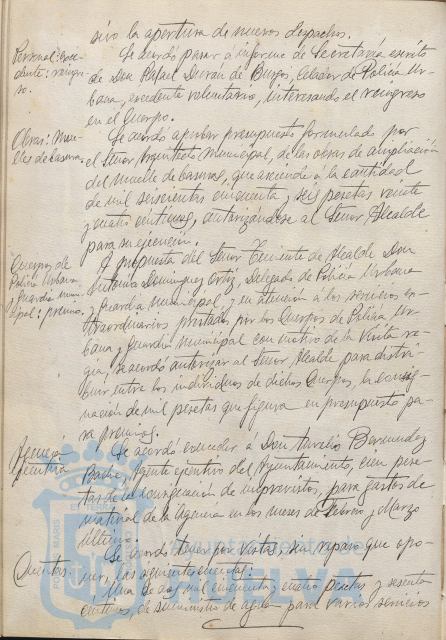 sivo la apertura de nuevos despachos.
Personal: exce-
dente: reingre-
so.
Se acordó pasar á informe de Secretaría escrito
de Don Rafael Durán de Burgos, Celador de Policía Ur-
bana, excedente voluntario, interesando el reingreso
en el Cuerpo.
Obras: Mue-
lle de basuras.
Se acordó aprobar presupuesto formulado por
el Señor Arquitecto Municipal, de las obras de ampliación
del muelle de basuras, que asciende á la cantidad
de mil seiscientas cincuenta y seis pesetas veinte
y cuatro centimos, autorizándose al Señor Alcalde
para su ejecución.
Cuerpos de
Policía Urbana
y Guardia muni-
cipal: premios.
A propuesta del Señor Teniente de Alcalde Don
Antonio Dominguez Ortiz, Delegado de Policía Urbana
y Guardia Municipal, y en atención a los servicios ex-
traordinarios prestados por los Cuerpos de Policía Ur-
bana y Guardia Municipal con motivo de la Visita re-
gia, se acordó autorizar al Señor Alcalde para distri-
buir entre los individuos de dichos Cuerpos, la consig-
nación de mil pesetas que figura en presupuesto pa-
ra premios.
Agencia
Ejecutiva
Se acordó conceder á Don Aurelio Bermudez
Agente ejecutivo del Ayuntamiento, cien pese-
tas de la consignación de imprevistos, para gastos de
material de la Agencia en los meses de Febrero y Marzo
último.
Cuentas.
Se acordó tener por vistas, sin reparo que opo-
ner, las siguientes cuentas:
Una de dos mil cincuenta y cuatro pesetas y sesenta
centimos, de suministro de agua para varios servicios